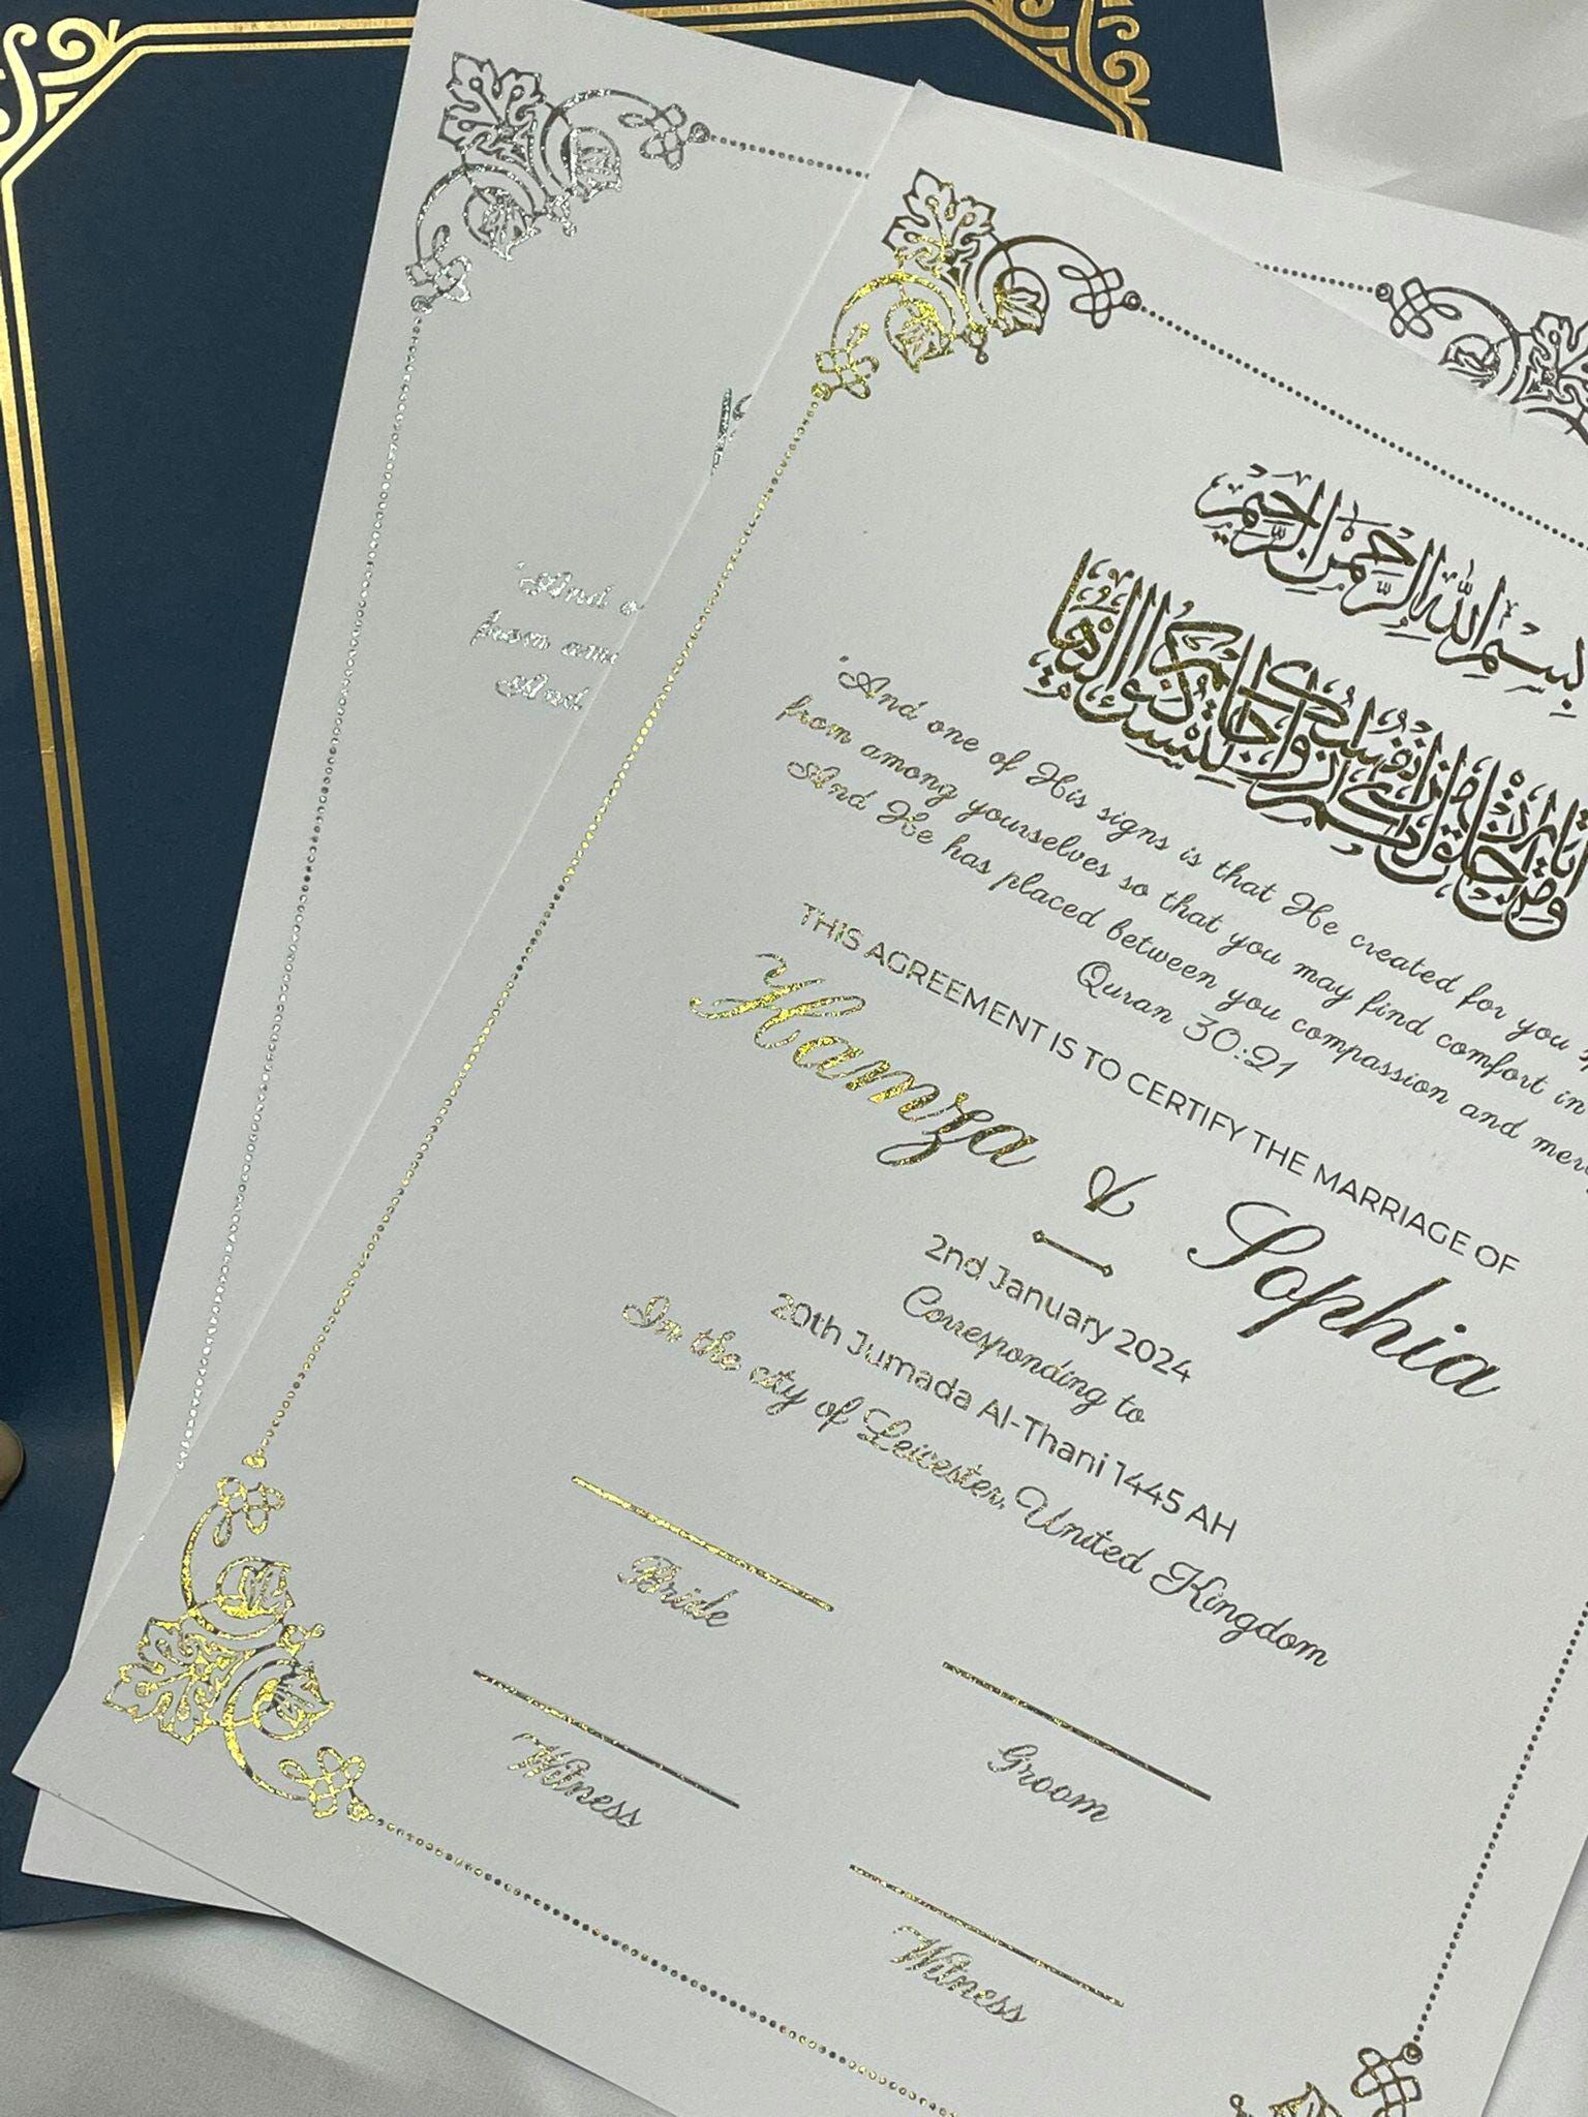 بِسْمِ اللهِ الرَّحْمٰنِ الرَّحِيْمِ
"And one of His signs is that He created for you
from among yourselves so that you may find comfort in
And He has placed between you compassion and
Quran 30:21
THIS AGREEMENT IS TO CERTIFY THE MARRIAGE OF
Hamza & Sophia
2nd January 2024
Corresponding to
20th Jumada Al-Thani 1445 AH
In the city of Leicester, United Kingdom
Bride
Groom
Witness
Witness
"And
from
And